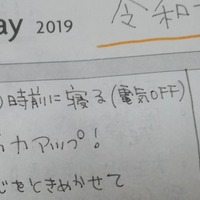 ay 2019
令和
時前に寝る(電気OFF)
力アップ!
をときめかせて